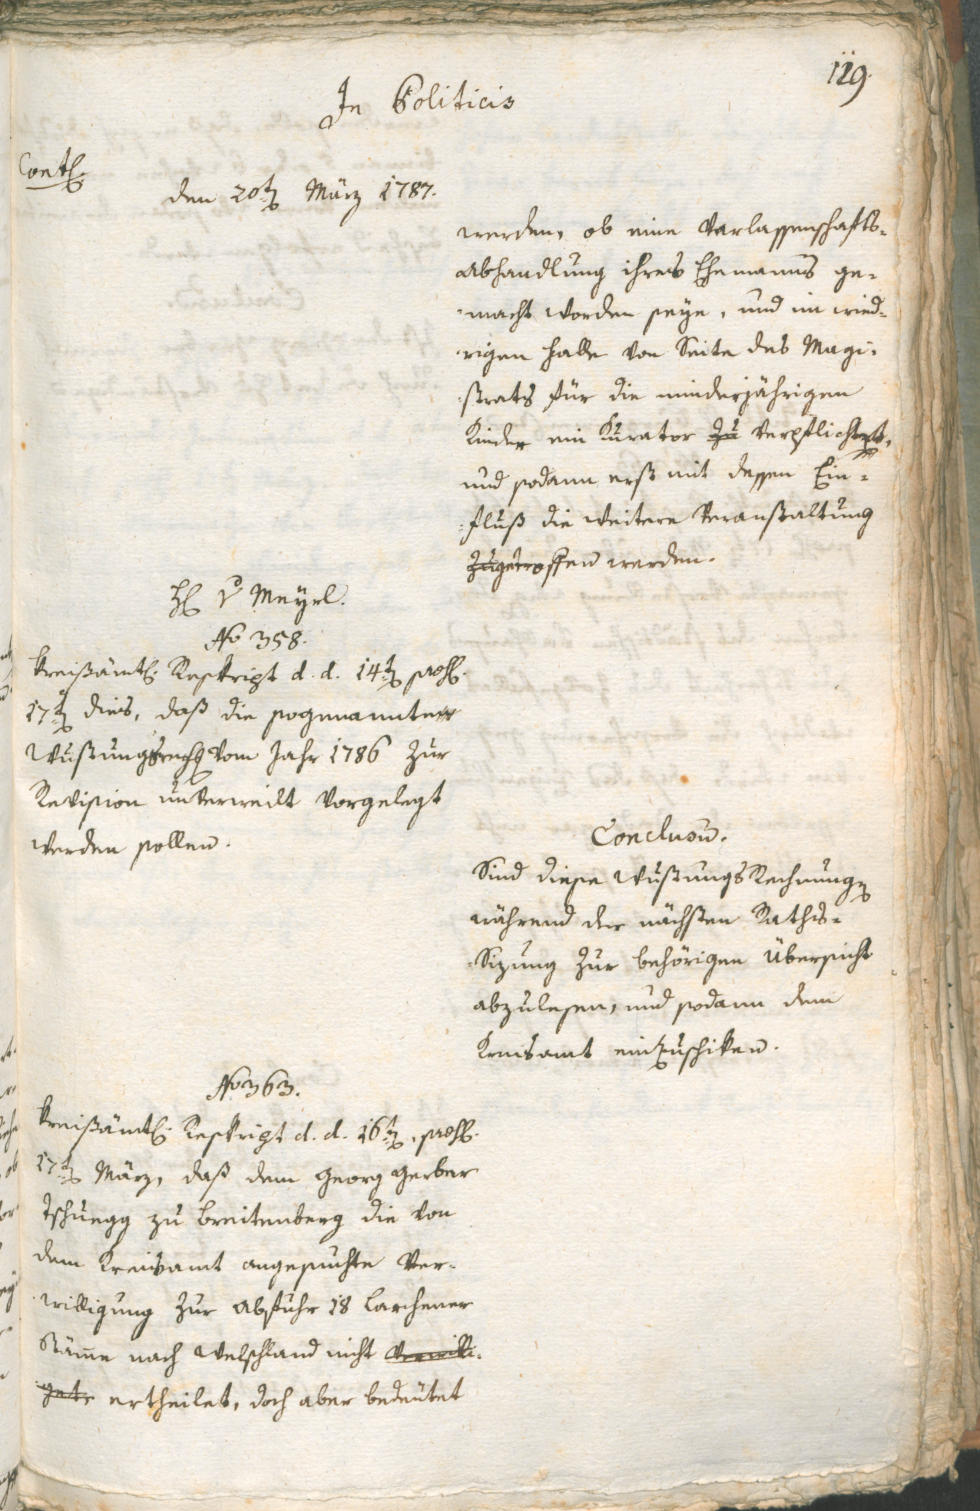 119.
In Politicis
Cont.
den 20t März 1787.
werden, ob eine Verlassenschafts-
Abhandlung ihres Ehemanns ge-
macht worden seye, und im wied-
rigen Falle von Seite des Magi-
strats für die minderjährigen
Kinder ein Kurator zu verpflichtet,
und sodann erst mit dessen Ein-
fluß die weitere Veranstaltung
zugetroffen werden.
H v Meyrl.
No 358.
Kreißämtl. Reskript d. d. 14t, praes.
17t dies, daß die sogenannten
Wustungsrech vom Jahr 1786 zur
Revision unverweilt vorgelegt
werden sollen.
Conclusum.
Sind diese Wustungs Rechnung
während der nächsten Raths-
Sizung zur behörigen Übersicht
abzulesen, und sodann dem
Kreisamt einzuschiken.
No 363.
Kreißämtl. Reskript d. d. 16t, praes.
17t März, daß dem Georg Gerber
Tschuegg zu Breitenberg die von
dem Kreisamt angesuchte Ver-
willigung zur Abfuhr 18 Larchener
Stäme nach Welschland nicht Verwilli-
get, ertheilet, doch aber bedeutet